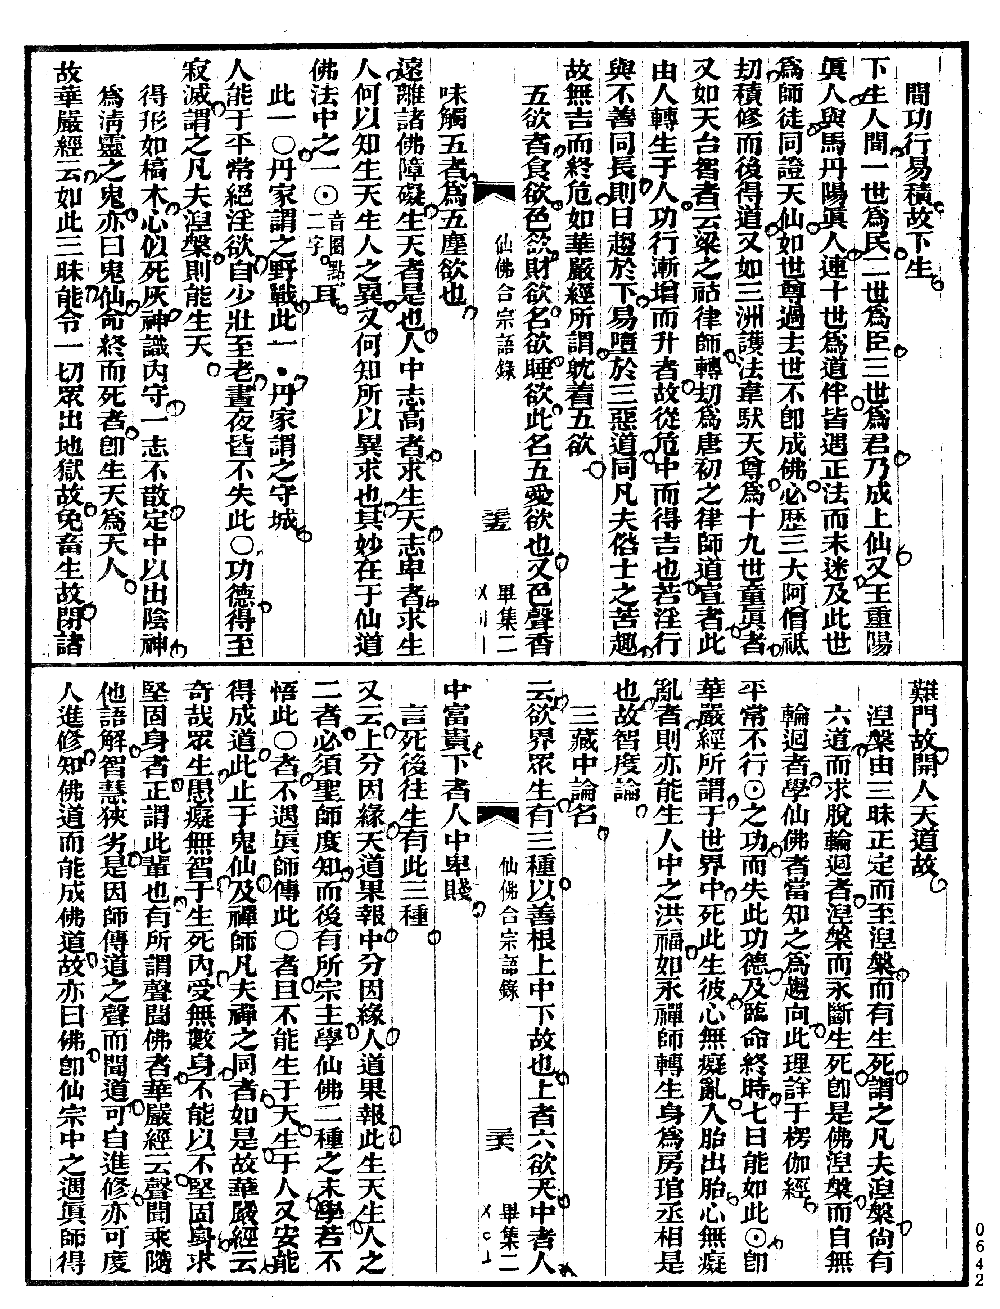 間功行易積故下生
下生人間一世爲民二世爲臣三世爲君乃成上仙又王重陽
眞人與馬丹陽眞人連十世爲道伴皆遇正法而未迷及此世
爲師徒同證天仙如世尊過去世不卽成佛必歷三大阿僧祗
刧積修而後得道又如三洲護法韋馱天尊爲十九世童眞者
又如天台智者云梁之祜律師轉刧爲唐初之律師道宣者此
由人轉生于人功行漸增而升者故從危中而得吉也若淫行
與不善同長則日趨於下易墮於三惡道同凡夫俗士之苦趣
故無吉而終危如華嚴經所謂躭着五欲
五欲者食欲色欲財欲名欲睡欲此名五愛欲也又色聲香
仙佛合宗語錄
畢集二
味觸五者爲五塵欲也
遠離諸佛障礙生天者是也人中志高者求生天志卑者求生
人何以知生天生人之異又何知所以異求也其妙在于仙道
佛法中之一⊙音圈點二字耳
此一〇丹家謂之野戰此一•丹家謂之守城
人能于平常絕淫欲自少壯至老晝夜皆不失此〇功德得至
寂滅謂之凡夫湼槃則能生天
得形如槁木心似死灰神識內守一志不散定中以出陰神
爲淸靈之鬼亦曰鬼仙命終而死者卽生天爲天人
故華嚴經云如此三昧能令一切眾出地獄故免畜生故閉諸
難門故開人天道故
湼槃由三昧正定而至湼槃而有生死謂之凡夫湼槃尙有
六道而求脫輪迴者湼槃而永斷生死卽是佛湼槃而自無
輪迴者學仙佛者當知之爲趨向此理詳于楞伽經
平常不行⊙之功而失此功德及臨命終時七日能如此⊙卽
華嚴經所謂于世界中死此生彼心無癡亂入胎出胎心無癡
亂者則亦能生人中之洪福如永禪師轉生身爲房琯丞相是
也故智度論
三藏中論名
云欲界眾生有三種以善根上中下故也上者六欲天中者人
仙佛合宗語錄
畢集二
中富貴下者人中卑賤
言死後往生有此三種
又云上分因緣天道果報中分因緣人道果報此生天生人之
二者必須聖師度知而後有所宗主學仙佛二種之未學若不
悟此〇者不遇眞師傳此〇者且不能生于天生于人又安能
得成道此止于鬼仙及禪師凡夫禪之同者如是故華嚴經云
奇哉眾生愚癡無智于生死內受無數身不能以不堅固身求
堅固身者正謂此輩也有所謂聲聞佛者華嚴經云聲聞乘隨
他語解智慧狹劣是因師傳道之聲而聞道可自進修亦可度
人進修知佛道而能成佛道故亦曰佛卽仙宗中之遇眞師得
0642